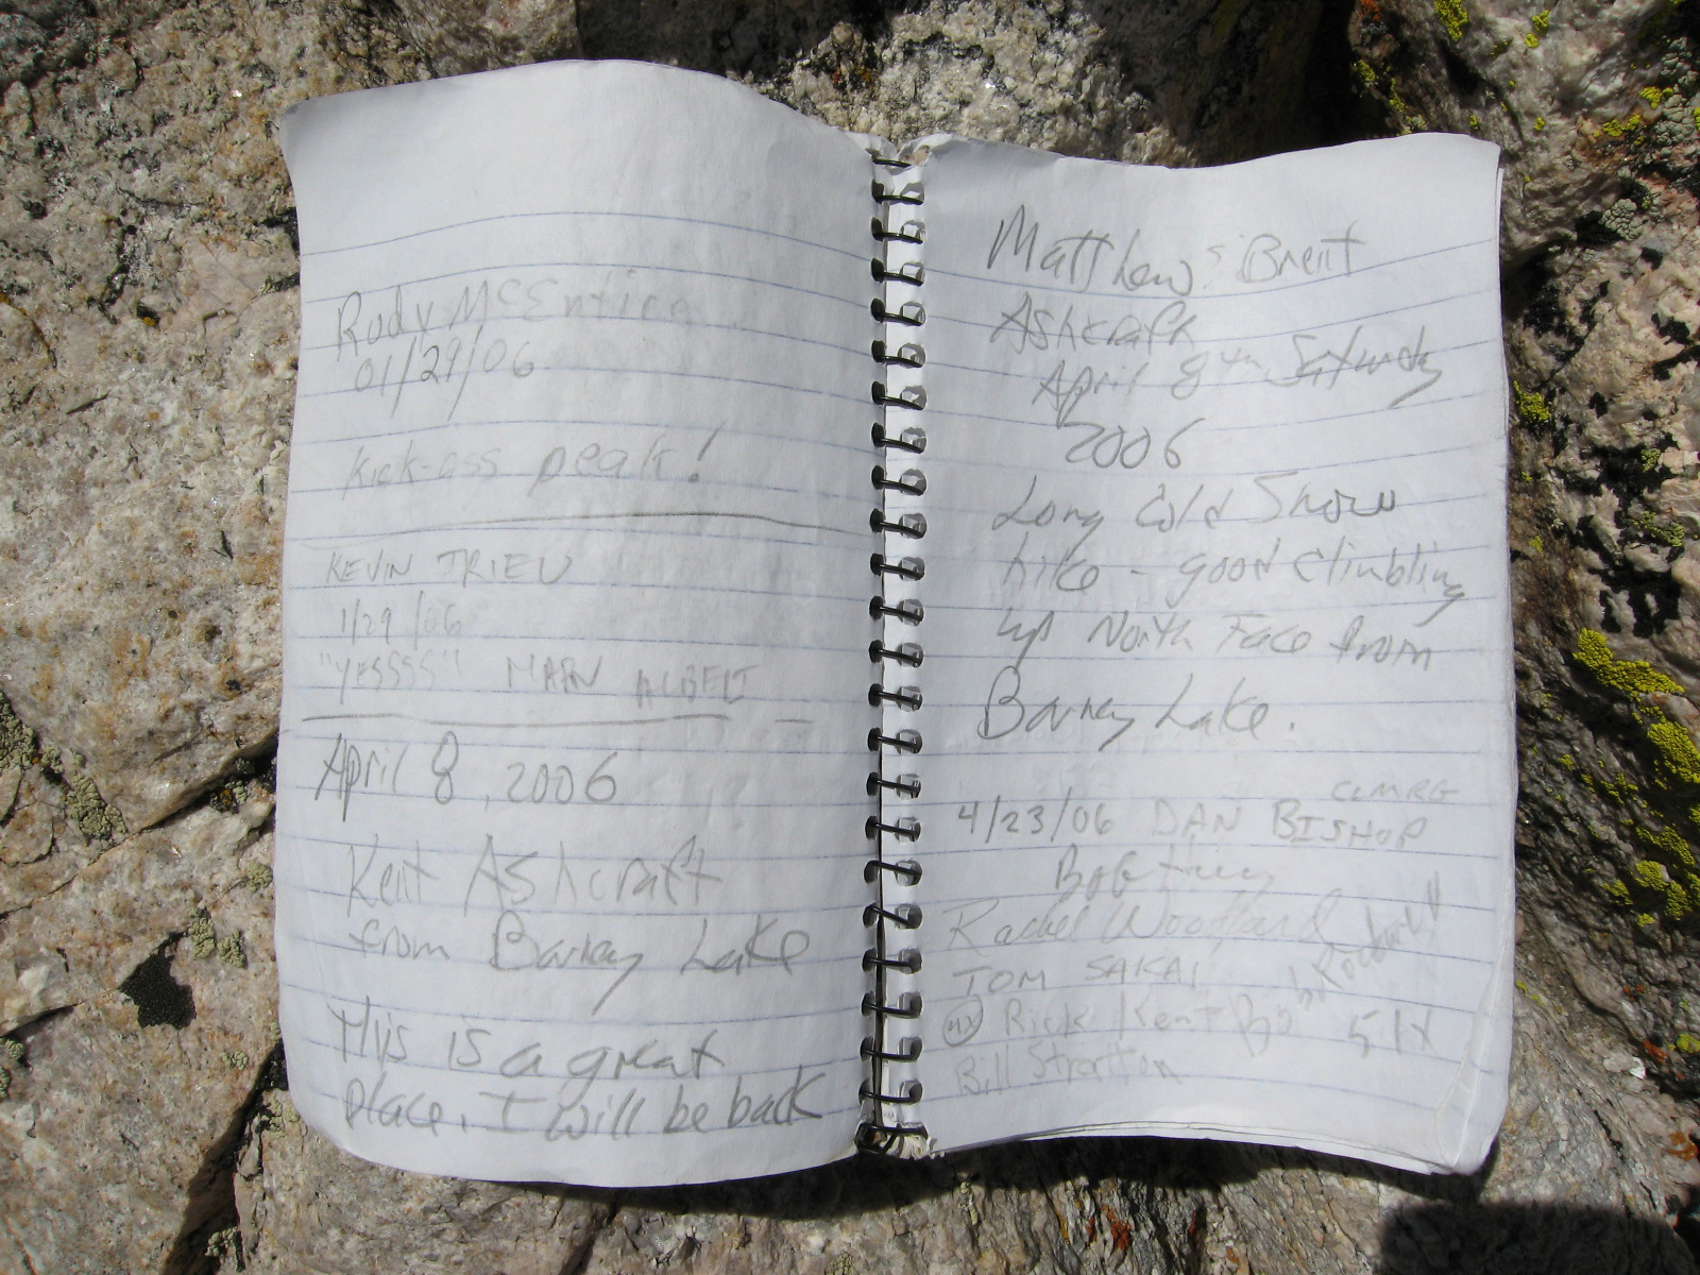 Rudy McEntire
01/29/06
Kick-ass peak!
KEVIN TRIEU
1/29/06
"YESSSS"
April 8, 2006
Kent Ashcraft
from Barney Lake
This is a great
place. I will be back
Matthew & Brent
Ashcraft
April 8th Saturday
2006
Long Cold Snow
hike - good climbling
up North Face from
Barney Lake.
CLMRG
4/23/06 DAN BISHOP
Rachel Woodland
TOM SAKAI
4X Rick Kent Bob Rockwell 51X
Bill Stratton